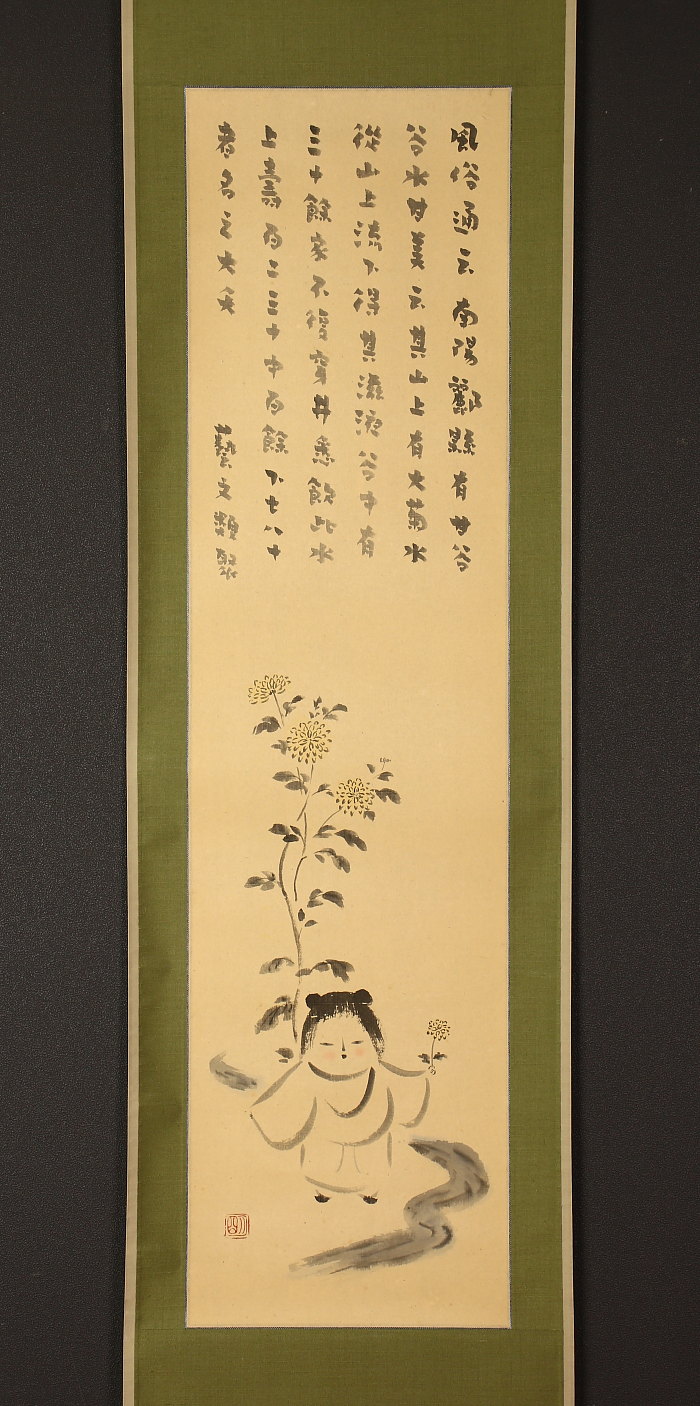 風俗通云南陽酈縣有甘谷
谷水甘美云其山上有大菊水
從山上流下得其滋液谷中有
三十餘家不復穿井悉飲此水
上壽百二三十中百餘下七八十
者名之大夭
藝文類聚